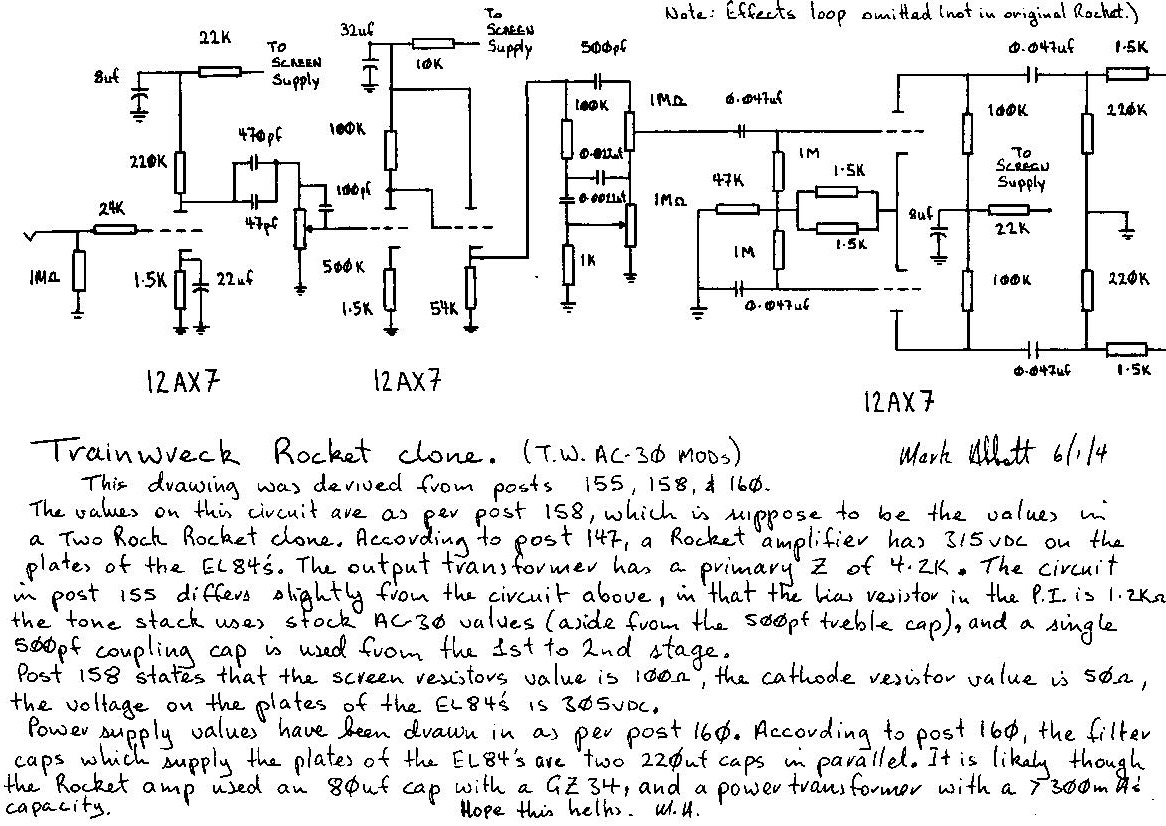 Note: Effects loop omitted (not in original Rocket.)
22K
To Screen Supply
8uf
32uf
10K
To Screen Supply
500pf
0.047uf
1.5K
100K
1MΩ
0.047uf
100K
220K
470pf
220K
100K
0.022uf
1M
1.5K
To Screen Supply
47K
24K
47pf
100pf
0.0022uf
1MΩ
8uf
22K
1.5K
1MΩ
1.5K
22uf
500K
1.5K
54K
1K
1M
0.047uf
100K
220K
0.047uf
1.5K
12AX7
12AX7
12AX7
Trainwreck Rocket clone. (T.W. AC-30 MODs)
Mark Abbott 6/1/4
This drawing was derived from posts 155, 158, & 160.
The values on this circuit are as per post 158, which is suppose to be the values in
a Two Rock Rocket clone. According to post 147, a Rocket amplifier has 315VDC on the
plates of the EL84's. The output transformer has a primary Z of 4.2K. The circuit
in post 155 differs slightly from the circuit above, in that the bias resistor in the P.I. is 1.2KΩ
the tone stack uses stock AC-30 values (aside from the 500pf treble cap), and a single
500pf coupling cap is used from the 1st to 2nd stage.
Post 158 states that the screen resistors value is 100Ω, the cathode resistor value is 50Ω,
the voltage on the plates of the EL84's is 305VDC.
Power supply values have been drawn in as per post 160. According to post 160, the filter
caps which supply the plates of the EL84's are two 220uf caps in parallel. It is likely though
the Rocket amp used an 80uf cap with a GZ34, and a power transformer with a > 300mA's
capacity. Hope this helps. M.A.